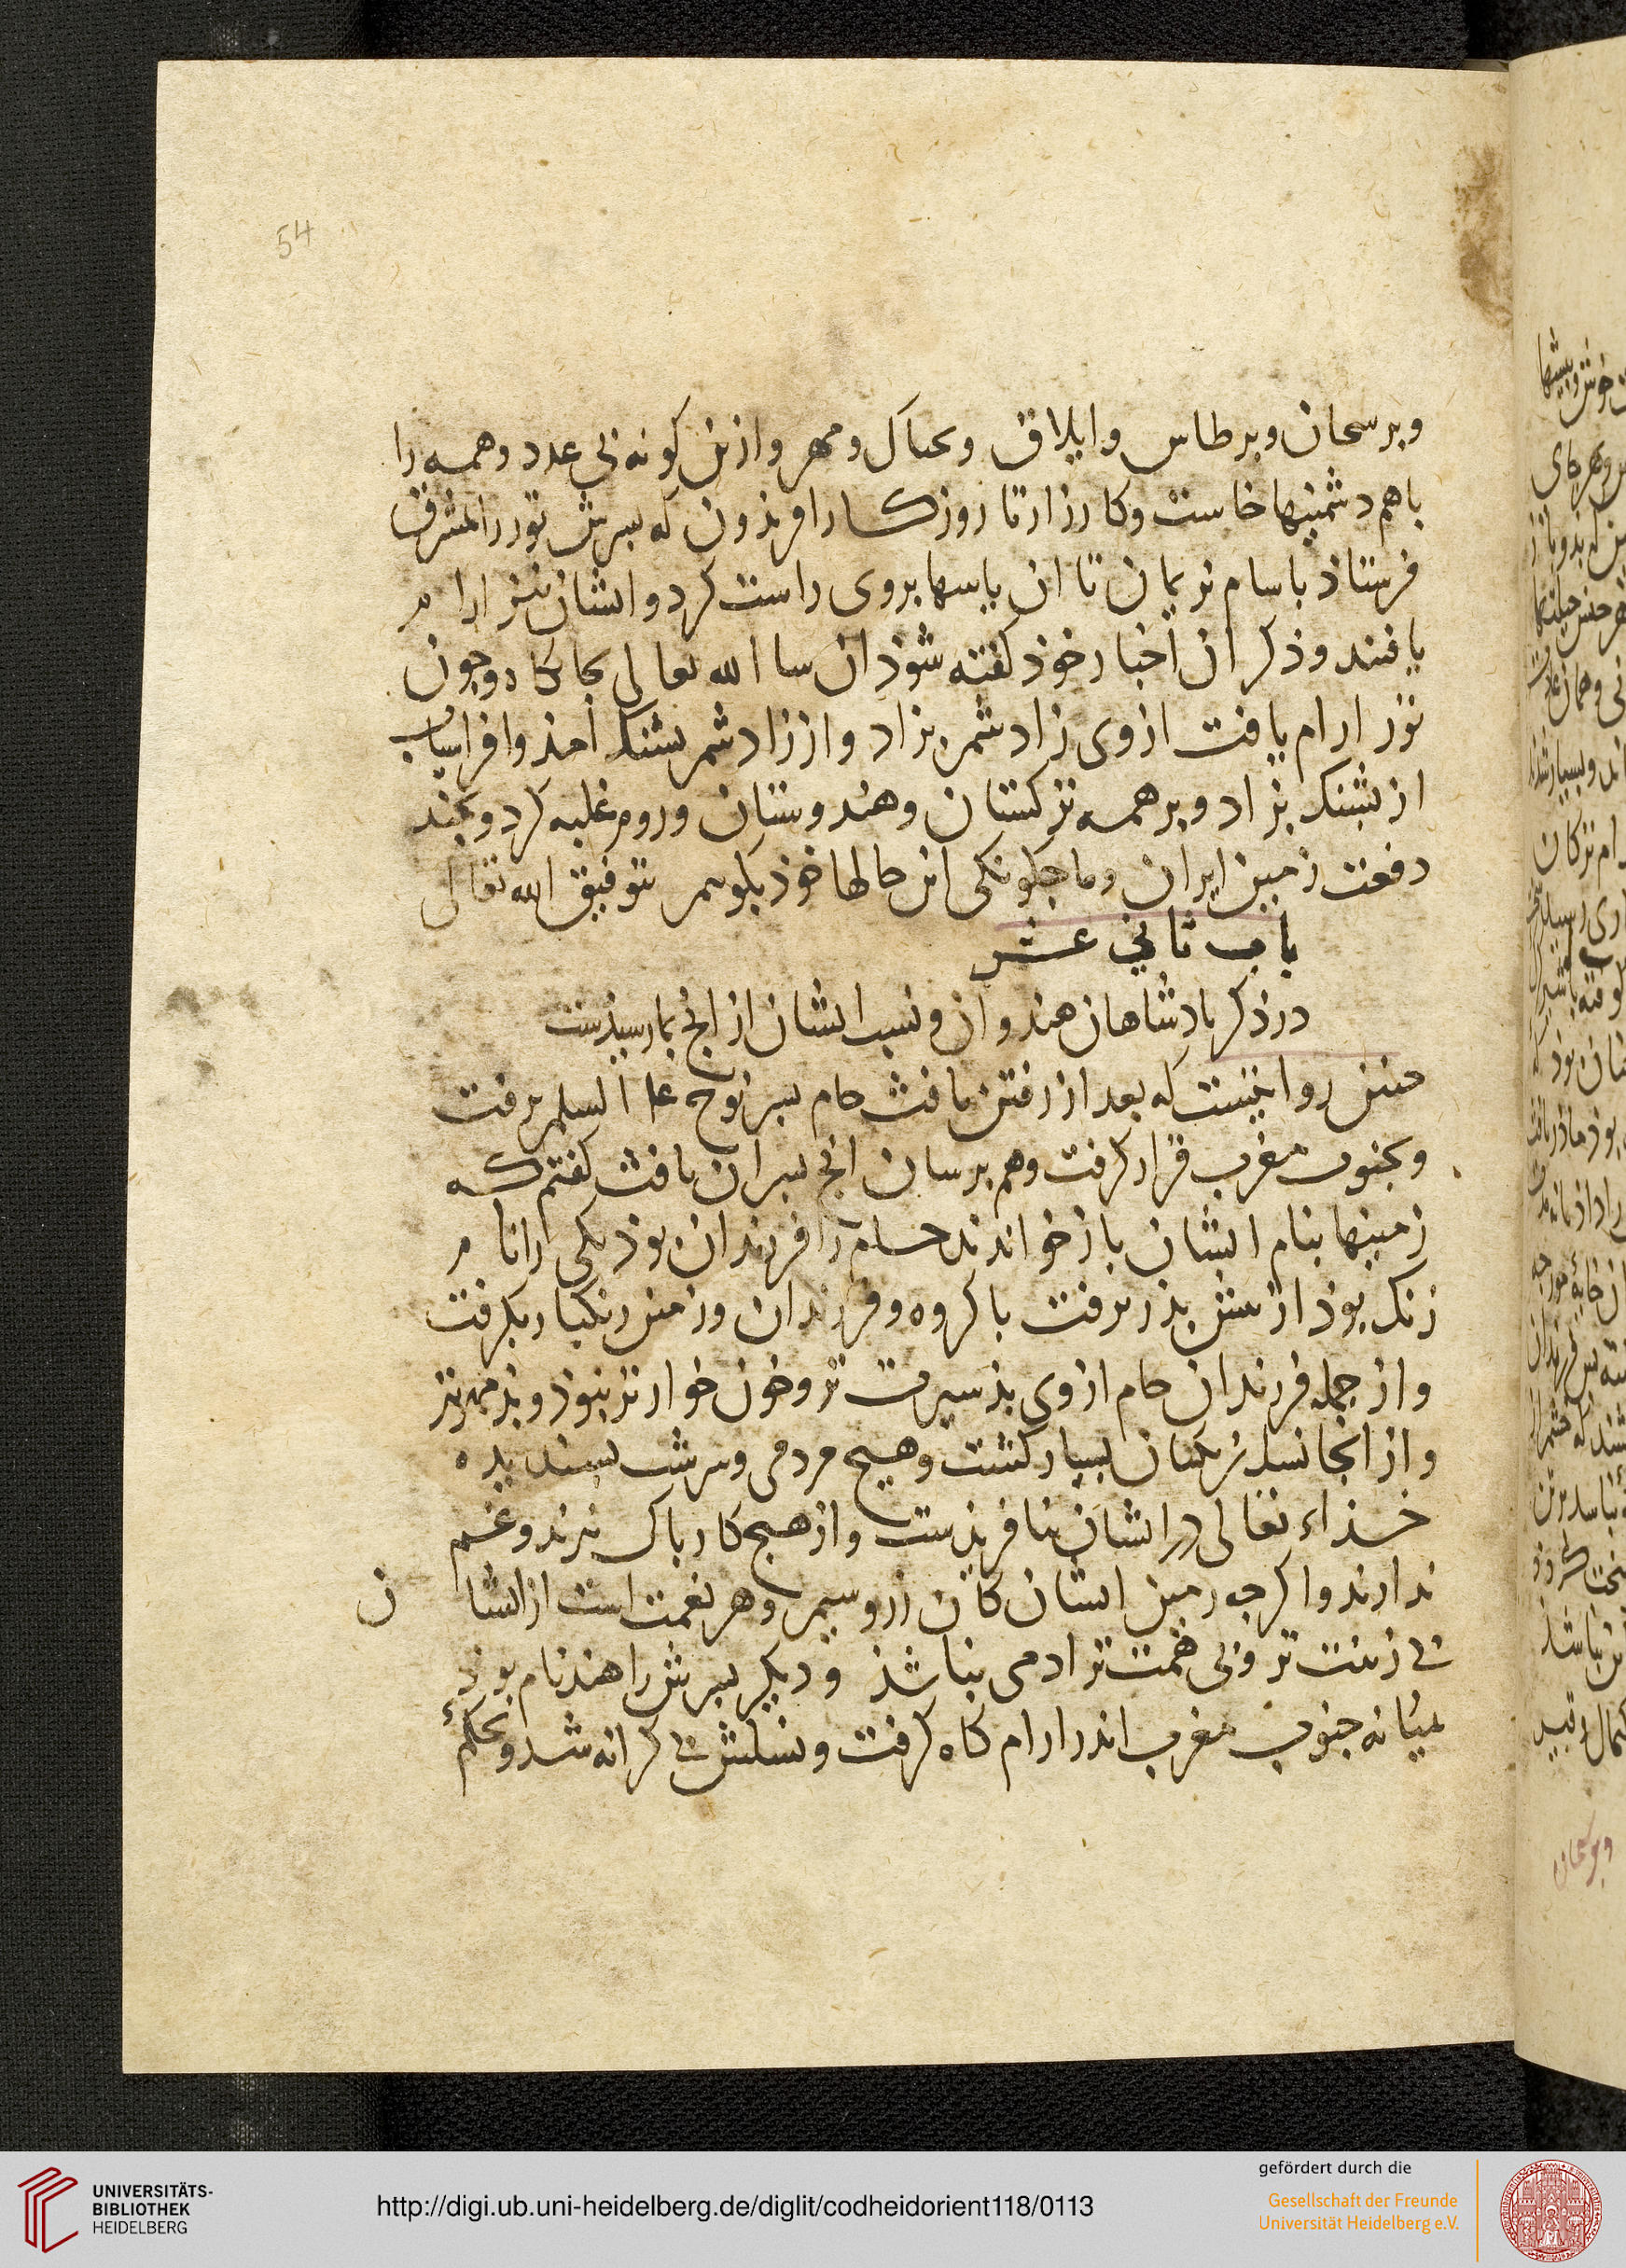 54
وبرسحان وبرطاس وایلاق وبحناک ومهر وازین کونه بی عدد وهمه را
باهم دشمنیها خاست وکارزار تا روزکار افریذون که بسرش تور را بمشرق
فرستاذ باسام نریمان تا ان یاسها بروی راست کرد و ایشان نیز ارام
یافتند وذکر ان اخبار خوذ کفته شوذ ان سا الله تعالی بجایکاه وجون
تور ارام یافت ازوی زادشم بزاد واز زادشم بشنک امذ وافراسیاب
از بشنک بزاد وبر همه ترکستان وهندوستان وروم غلبه کرد وبجند
دفعت زمین ایران وما جکونکی این حالها خوذ بکوییم بتوفیق الله تعالی
باب ثانی عشر
در ذکر باذشاهان هندوان ونسب ایشان از انج بما رسیذست
جنین روایتست که بعد از رفتن یافث حام بسر نوح علیه السلم برفت
وبجنوب مغرب قرار کرفت وهم برسان انج بسران یافث کفتم که
زمینها بنام ایشان بازخوانند حام را فرزندان بوذ یکی را نام
زنک بوذ از بیش بذر برفت با کروه وفرزندان وزمین زنکبار بکرفت
واز جمله فرزندان حام ازوی بذسیرت تر وخون خوارتر نبوذ وبذمهرتر
واز انجا نسل بسیار کشت وهیج مردمی وسرشت بسندیده
خذاء تعالی در ایشان نیافریذست واز هیج کار باک ندرند وغم
ندارند واکرجه زمین ایشان کان زر وسیم وهر نعمت است از ایشان
بی زینت تر وبی همت تر ادمی نباشذ ودیکر بسرش را هند نام بوذ
بمیانه جنوب مغرب اندر ارامکاه کرفت ونسلش بی کرانه شد وبحکم
وبرسحان
UNIVERSITÄTS-
BIBLIOTHEK
HEIDELBERG
http://digi.ub.uni-heidelberg.de/diglit/codheidorient118/0113
gefördert durch die
Gesellschaft der Freunde
Universität Heidelberg e.V.